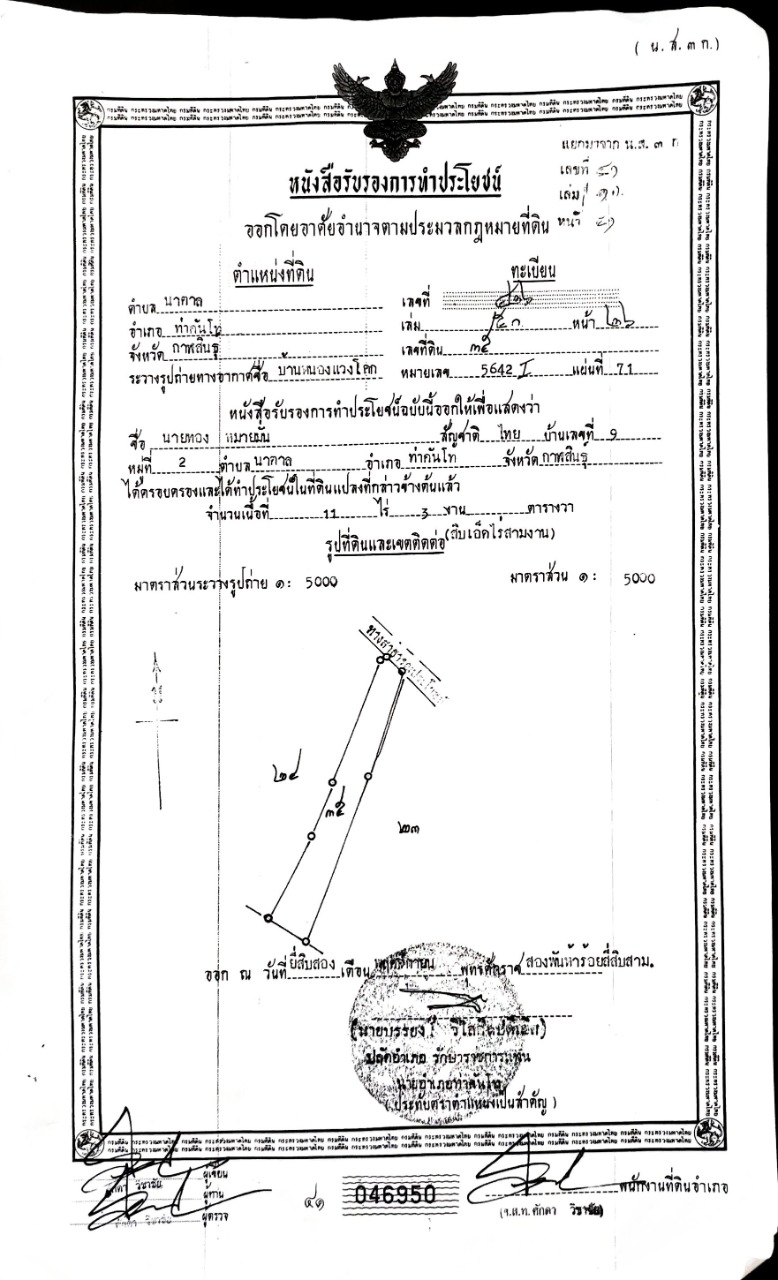 ( น.ส.๓ ก.)
แยกมาจาก น.ส. ๓ ก
เลขที่
เล่ม
หน้า
หนังสือรับรองการทำประโยชน์
ออกโดยอาศัยอำนาจตามประมวลกฎหมายที่ดิน
ตำแหน่งที่ดิน ทะเบียน
ตำบล นาตาล เลขที่
อำเภอ ท่าคันโท เล่ม หน้า
จังหวัด กาฬสินธุ์ เลขที่ดิน
ระวางรูปถ่ายทางอากาศชื่อ บ้านหนองแวงโคก หมายเลข 5642 I แผ่นที่ 71
หนังสือรับรองการทำประโยชน์ฉบับนี้ออกให้เพื่อแสดงว่า
ชื่อ นายทอง หมายมั่น สัญชาติ ไทย บ้านเลขที่ 9
หมู่ที่ 2 ตำบล นาตาล อำเภอ ท่าคันโท จังหวัด กาฬสินธุ์
ได้ครอบครองและได้ทำประโยชน์ในที่ดินแปลงที่กล่าวข้างต้นแล้ว
จำนวนเนื้อที่ 11 ไร่ 3 งาน ตารางวา
รูปที่ดินและเขตติดต่อ (สิบเอ็ดไร่สามงาน)
มาตราส่วนระวางรูปถ่าย ๑: 5000 มาตราส่วน ๑ : 5000
ทางสาธารณประโยชน์
๒๔
๒๓
ออก ณ วันที่ ยี่สิบสอง เดือน พฤศจิกายน พุทธศักราช สองพันห้าร้อยสี่สิบสาม.
ปลัดอำเภอ รักษาราชการแทน
นายอำเภอท่าคันโท
(ประทับตราตำแหน่งเป็นสำคัญ)
ผู้เขียน
ผู้ทาน
ผู้ตรวจ
046950
พนักงานที่ดินอำเภอ
(จ.ส.ท. ศักดา วิชาชัย)